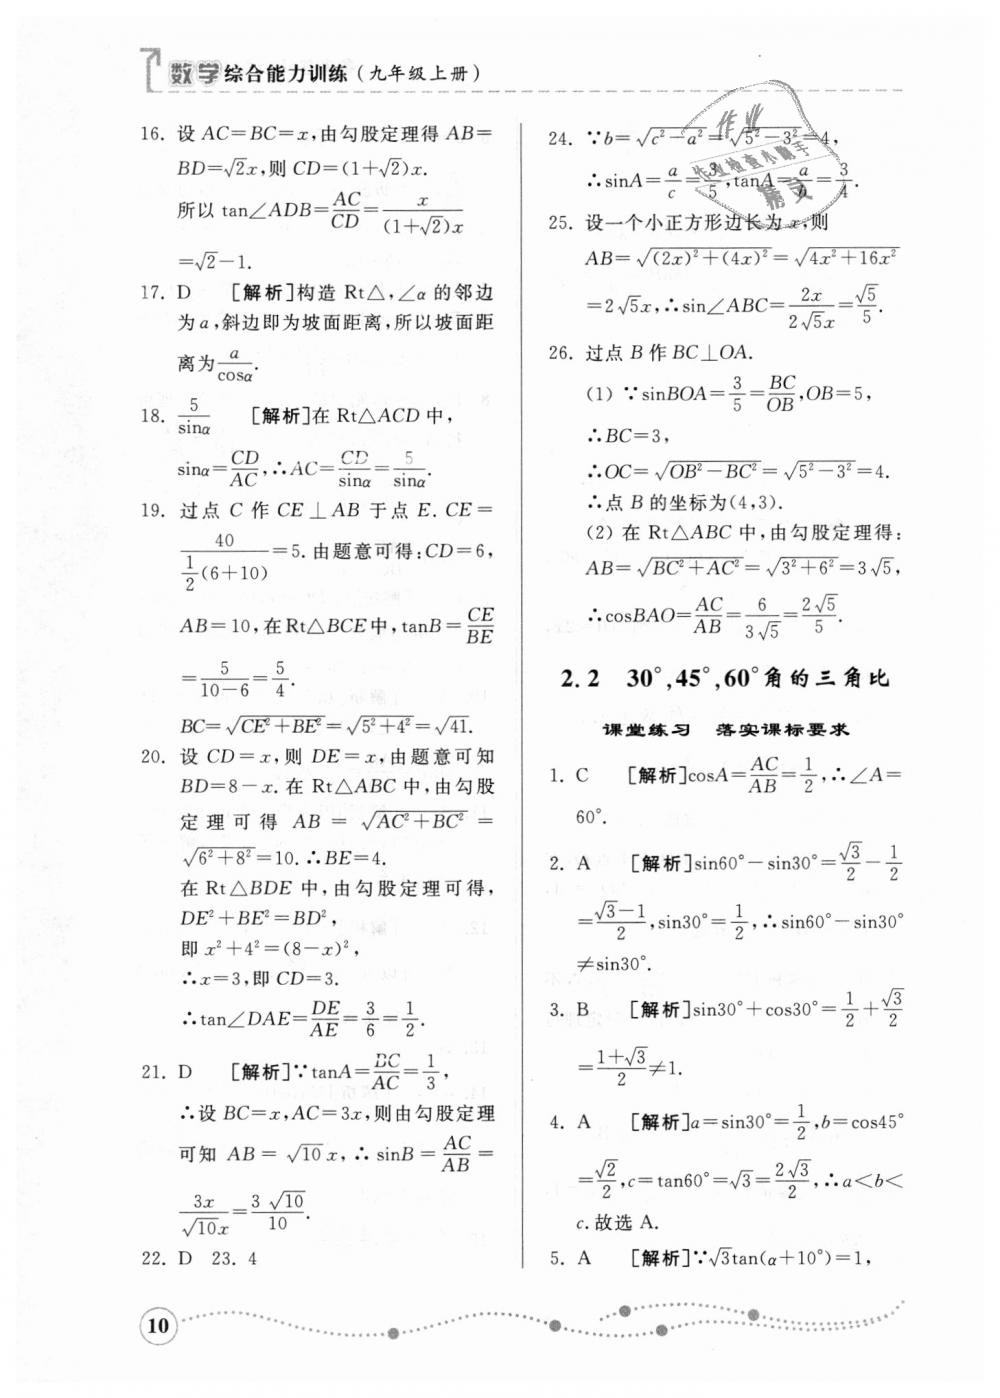 数学 综合能力训练(九年级上册)
16. 设 AC=BC=x,由勾股定理得 AB=
BD=√2x,则 CD=(1+√2)x.
所以 tan∠ADB=AC/CD=x/((1+√2)x)
=√2-1.
17. D [解析]构造 Rt△,∠α 的邻边
为 a,斜边即为坡面距离,所以坡面距
离为 a/cosα.
18. 5/sinα [解析]在 Rt△ACD 中,
sinα=CD/AC,∴AC=CD/sinα=5/sinα.
19. 过点 C 作 CE⊥AB 于点 E. CE=
40/(1/2(6+10))=5. 由题意可得:CD=6,
AB=10,在 Rt△BCE 中,tanB=CE/BE
=5/(10-6)=5/4.
BC=√(CE²+BE²)=√(5²+4²)=√41.
20. 设 CD=x,则 DE=x,由题意可知
BD=8-x. 在 Rt△ABC 中,由勾股
定理可得 AB=√(AC²+BC²)=
√(6²+8²)=10. ∴BE=4.
在 Rt△BDE 中,由勾股定理可得,
DE²+BE²=BD²,
即 x²+4²=(8-x)²,
∴x=3,即 CD=3.
∴tan∠DAE=DE/AE=3/6=1/2.
21. D [解析]∵tanA=BC/AC=1/3,
∴设 BC=x,AC=3x,则由勾股定理
可知 AB=√10x,∴sinB=AC/AB=
3x/(√10x)=3√10/10.
22. D 23. 4
24. ∵b=√(c²-a²)=√(5²-3²)=4,
∴sinA=a/c=3/5,tanA=a/b=3/4.
25. 设一个小正方形边长为 x,则
AB=√((2x)²+(4x)²)=√(4x²+16x²)
=2√5x,∴sin∠ABC=2x/(2√5x)=√5/5.
26. 过点 B 作 BC⊥OA.
(1) ∵sinBOA=3/5=BC/OB,OB=5,
∴BC=3,
∴OC=√(OB²-BC²)=√(5²-3²)=4.
∴点 B 的坐标为(4,3).
(2) 在 Rt△ABC 中,由勾股定理得:
AB=√(BC²+AC²)=√(3²+6²)=3√5,
∴cosBAO=AC/AB=6/(3√5)=2√5/5.
2.2 30°,45°,60°角的三角比
课堂练习 落实课标要求
1. C [解析]cosA=AC/AB=1/2,∴∠A=
60°.
2. A [解析]sin60°-sin30°=√3/2-1/2
=(√3-1)/2,sin30°=1/2,∴sin60°-sin30°
≠sin30°.
3. B [解析]sin30°+cos30°=1/2+√3/2
=(1+√3)/2≠1.
4. A [解析]a=sin30°=1/2,b=cos45°
=√2/2,c=tan60°=√3=2√3/2,∴a<b<
c. 故选 A.
5. A [解析]∵√3tan(α+10°)=1,
10
作业
作业检查小助手
精灵